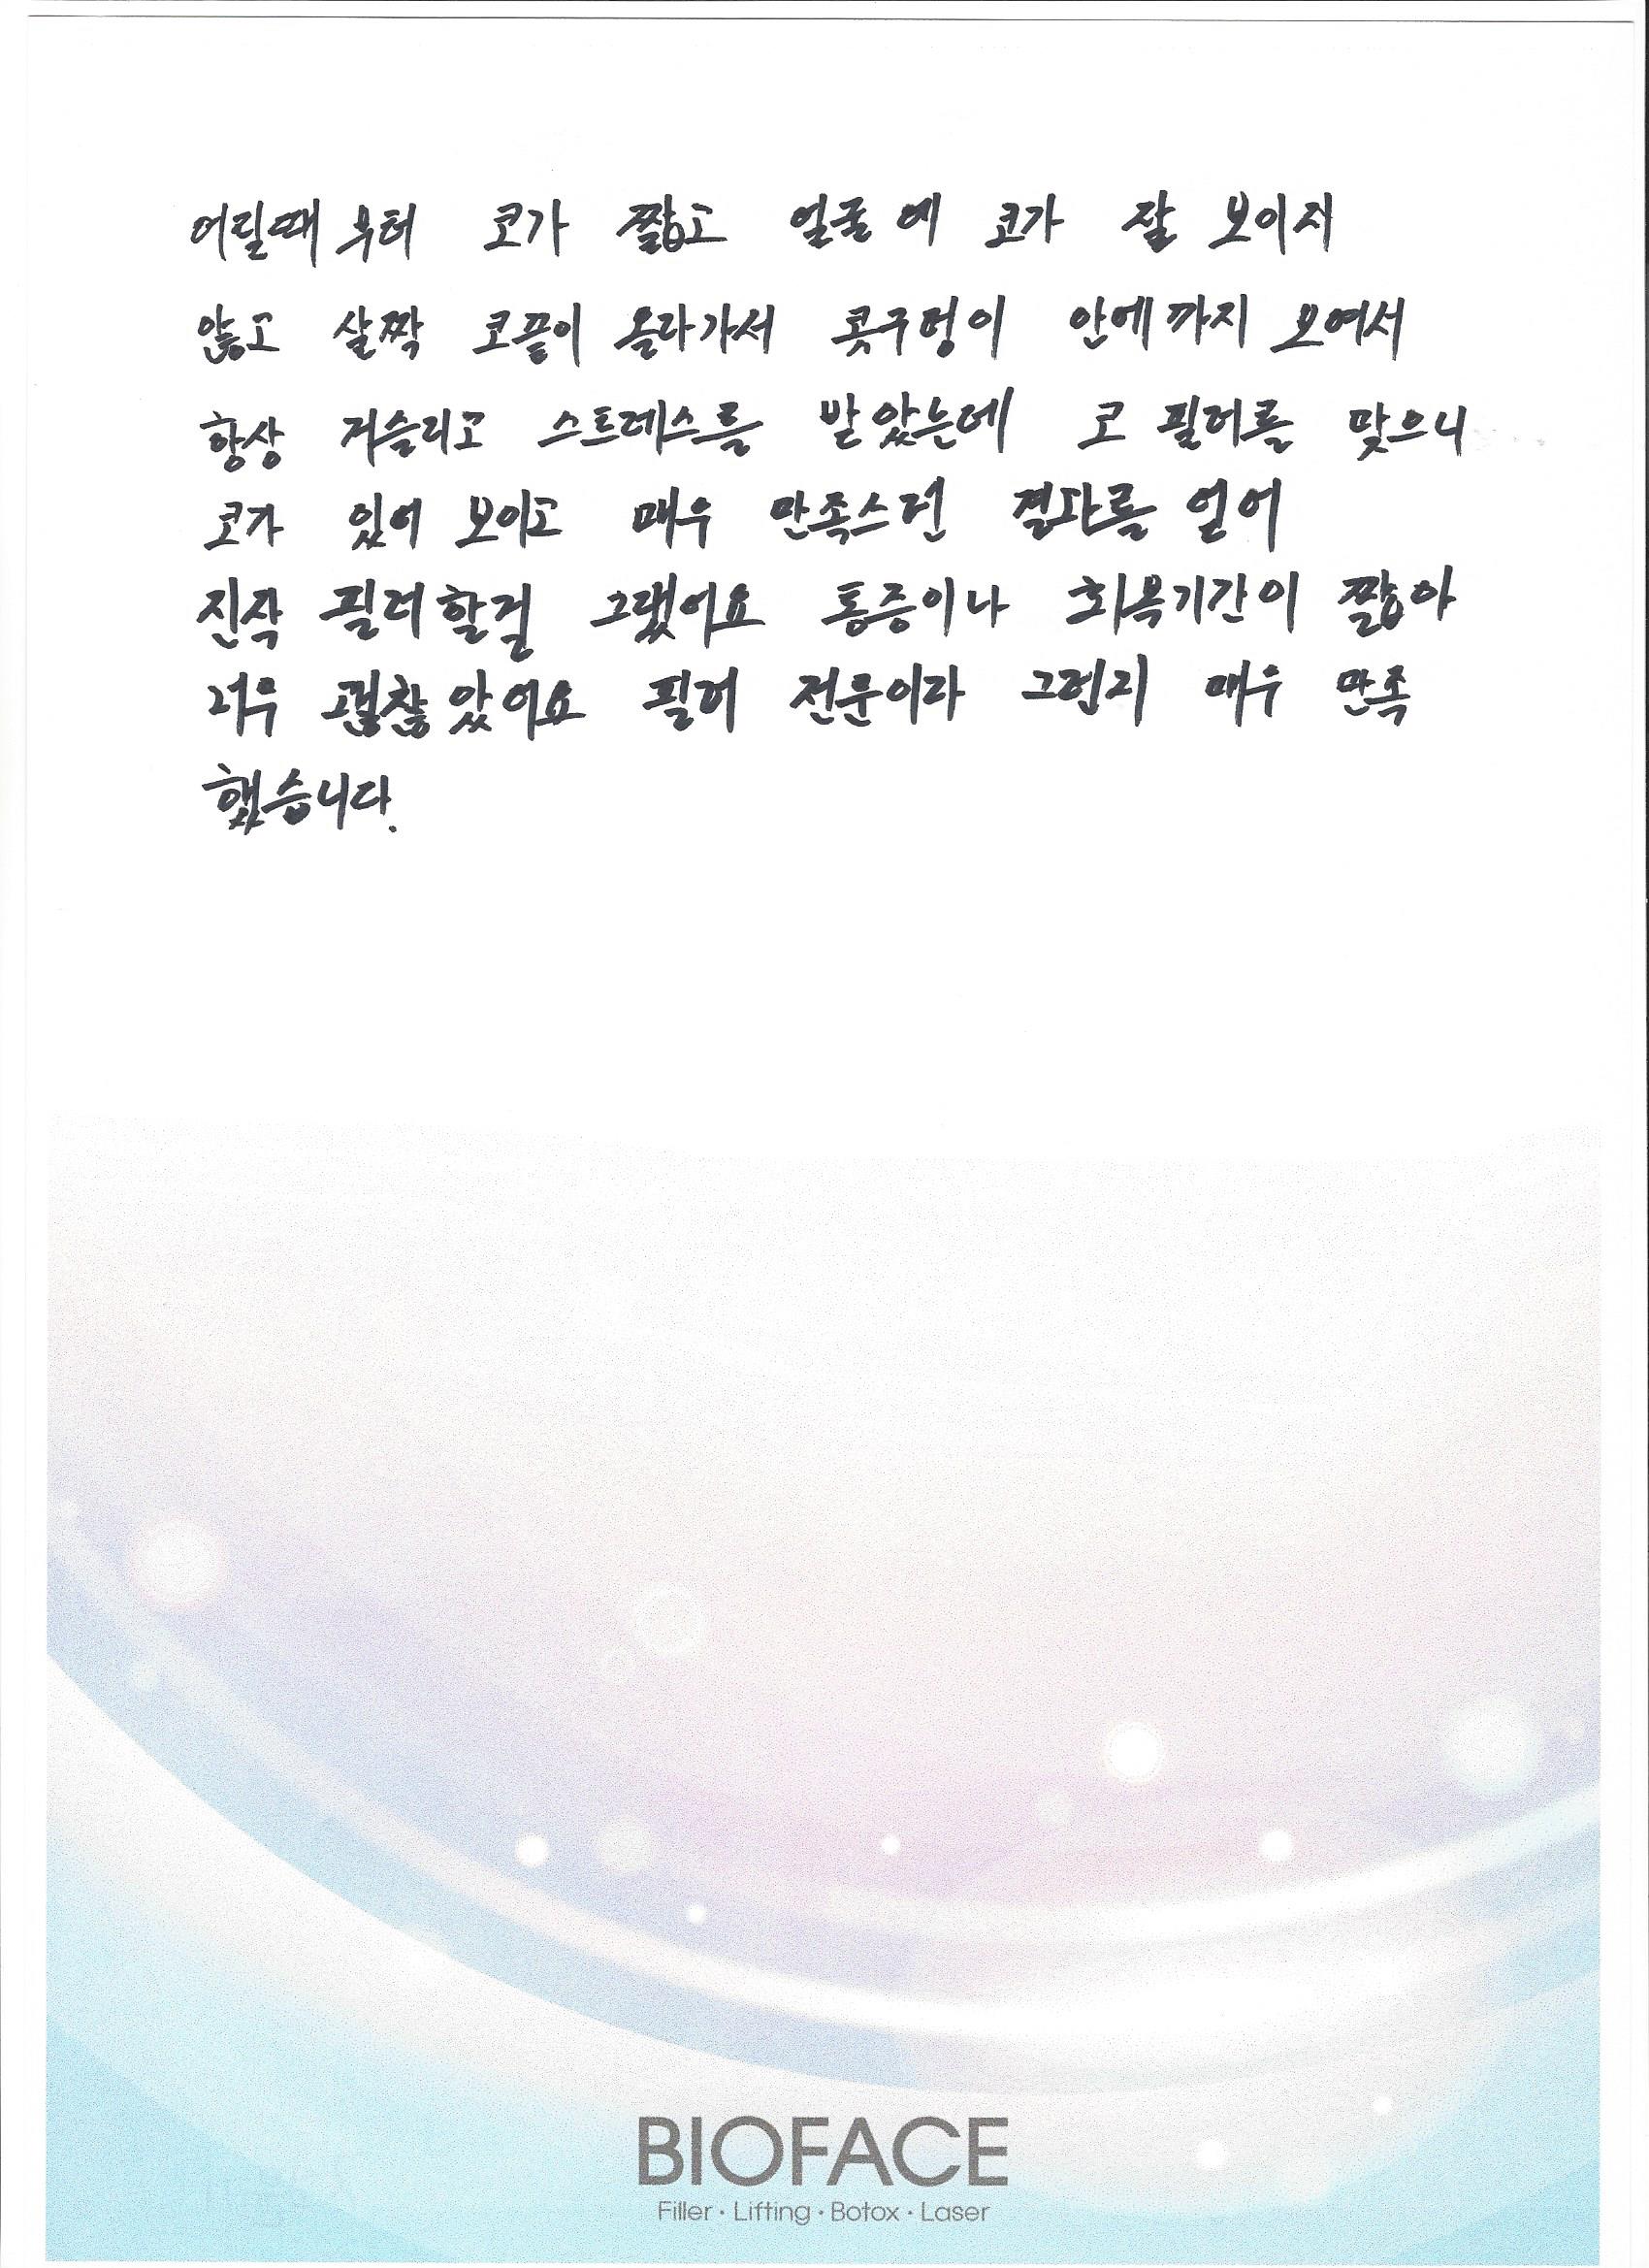 어릴때 부터 코가 짧고 얼굴에 코가 잘 보이지
않고 살짝 코끝이 올라가서 콧구멍이 안에까지 보여서
항상 거슬리고 스트레스를 받았는데 코 필러를 맞으니
코가 있어 보이고 매우 만족스런 결과를 얻어
진작 필러할걸 그랬어요 통증이나 회복기간이 짧아
너무 괜찮았어요 필러 전문이라 그런지 매우 만족
했습니다.
BIOFACE
Filler · Lifting · Botox · Laser